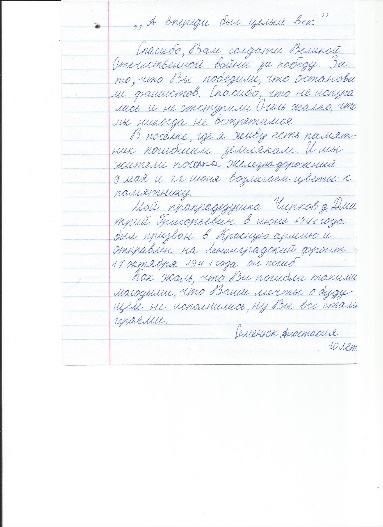 „А впереди был целый век."
Спасибо, Вам солдаты Великой
Отечественной войны за победу. За
то, что Вы победили, что останови
ли фашистов. Спасибо, что не испуга
лись и не отступили. Очень жалко, что
мы никогда не встретимся.
В посёлке, где я живу есть памят
ник погибшим землякам. И мы
жители посёлка Железнодорожный
9 мая и 22 июня возлагаем цветы к
памятнику.
Мой прапрадедушка Дми
трий Григорьевич в июне 1941 года
был призван в Красную армию и
отправлен на Ленинградский фронт.
17 октября 1941 года он погиб.
Как жаль, что Вы погибли такими
молодыми, что Ваши мечты о буду
щем не исполнились, но Вы все стали
героями.
Анастасия
10 лет